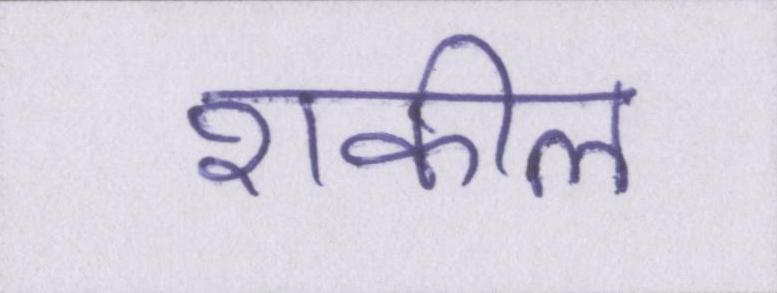 शकील